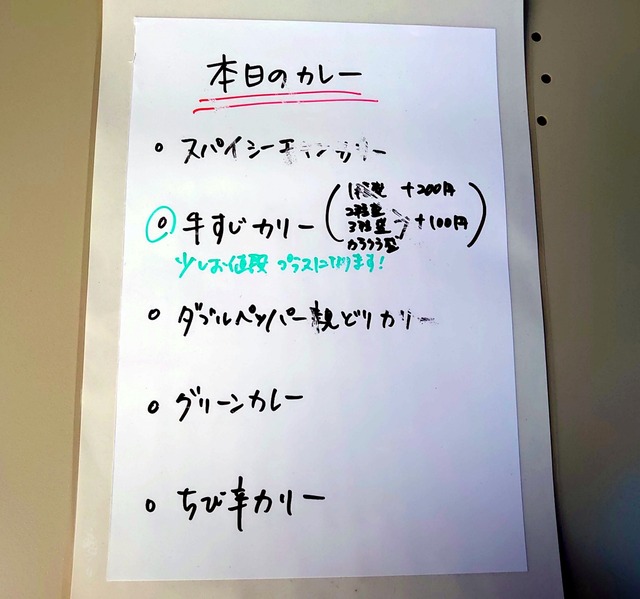 本日のカレー
スパイシーチキンカリー
牛すじカリー
1種盛 +200円
2種盛
3種盛
+100円
少しお値段 プラスになります!
ダブルペッパー親どりカリー
グリーンカレー
ちび辛カリー